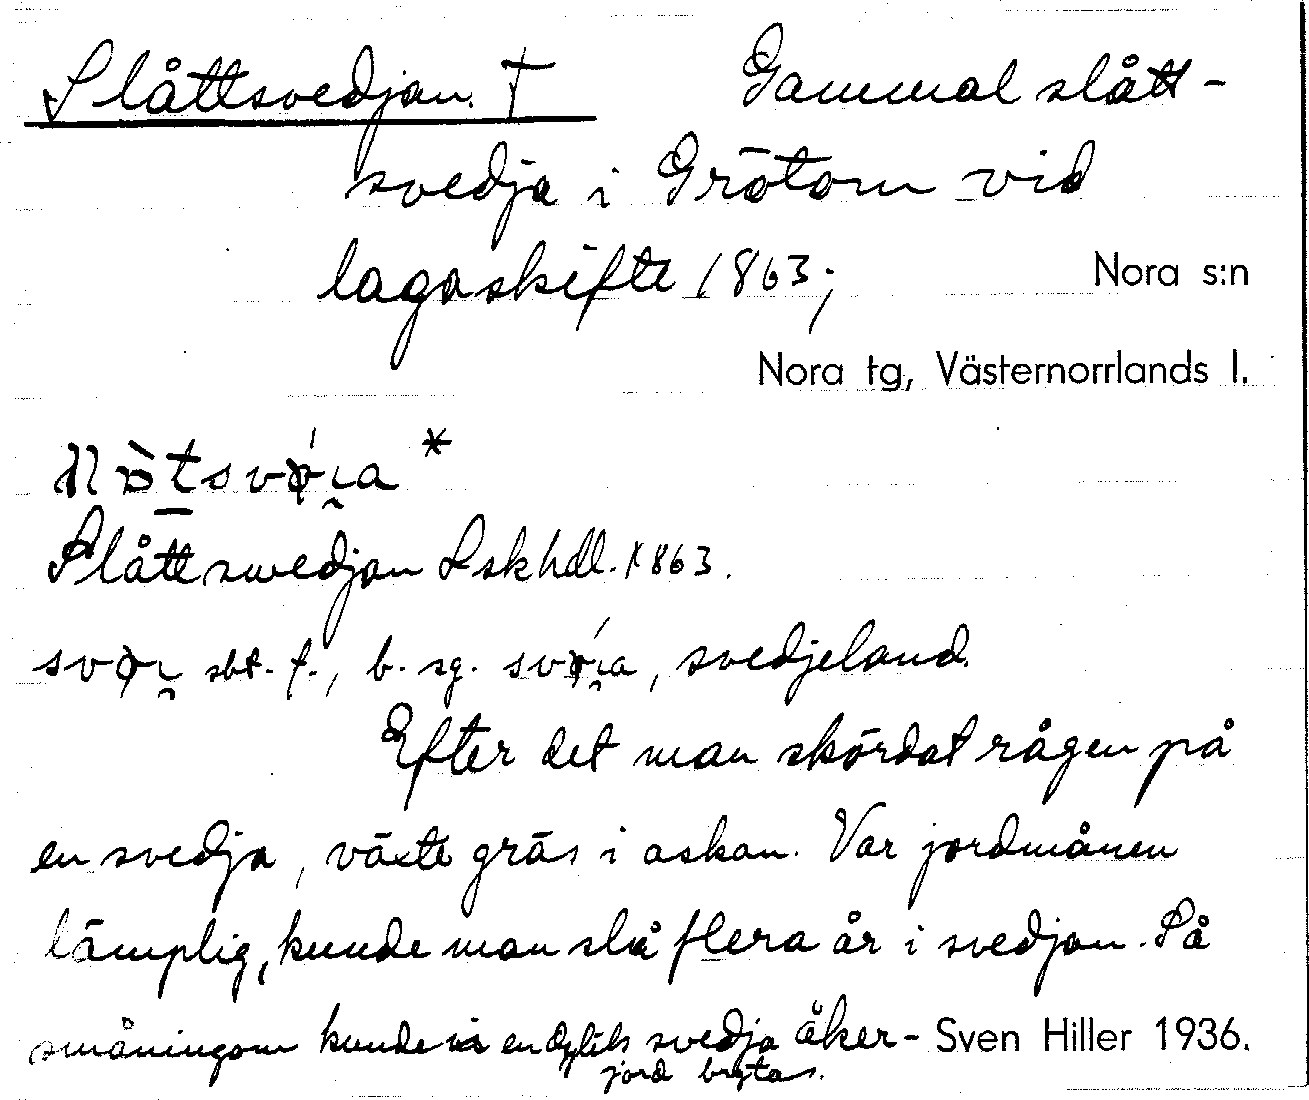 Slåttsvedjan. † Gammal slått-
svedja i Grötom vid
lagaskifte 1863;
Nora s:n
Nora tg, Västernorrlands l.
Slåttswedjan Lskhdl. 1863.
sbt. f., b. sg. , svedjeland.
Efter det man skördat rågen på
en svedja, växte gräs i askan. Var jordmånen
lämplig, kunde man slå flera år i svedjan. Så
småningom kunde i en dylik svedja åker-
jord brytas.
Sven Hiller 1936.